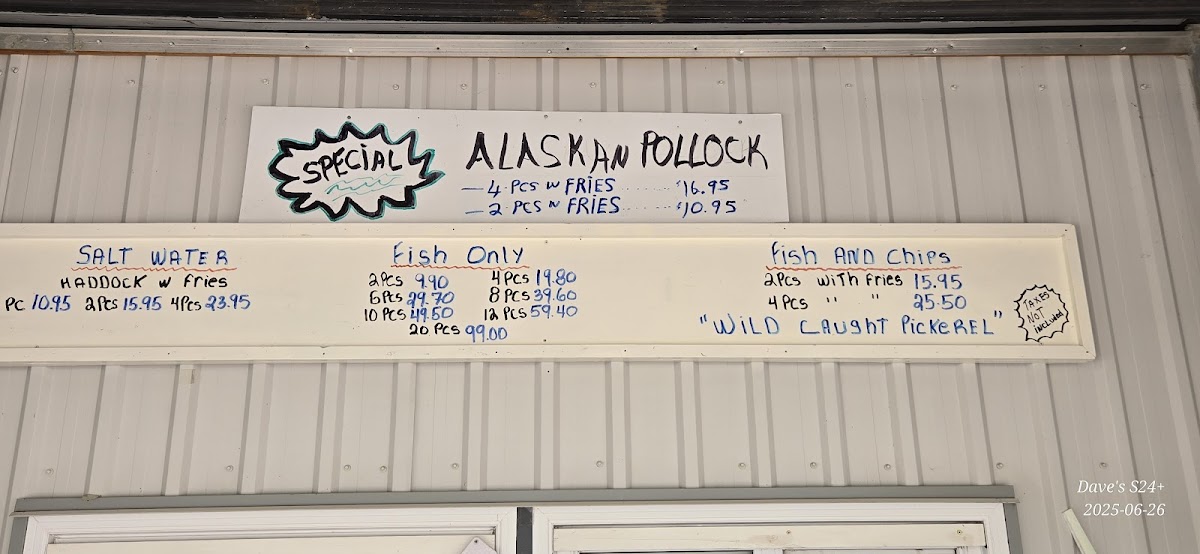 SPECIAL
ALASKAN POLLOCK
- 4 PCS W FRIES ...... $16.95
- 2 PCS W FRIES ...... $10.95
SALT WATER
HADDOCK W Fries
PC 10.95 2Pcs 15.95 4Pcs 23.95
Fish Only
2Pcs 9.90 4Pcs 19.80
6Pcs 29.70 8Pcs 39.60
10 Pcs 49.50 12 Pcs 59.40
20 Pcs 99.00
Fish AND Chips
2Pcs WiTh Fries 15.95
4 Pcs " " 25.50
"WiLD CAUGHT PiCKEREL"
TAXES
NOT
INCLUDED
Dave's S24+
2025-06-26